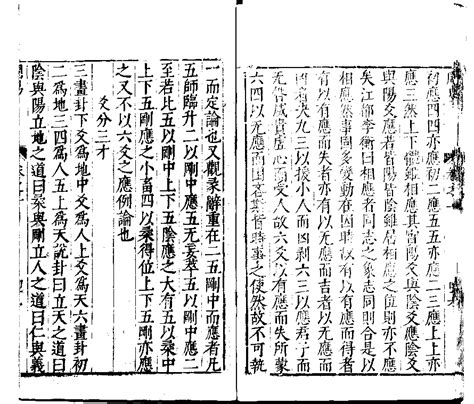 初應四四亦應初二應五五亦應二三應上上亦
應三然上下體雖相應其實陽爻與陰爻應陰爻
與陽爻應若皆陽皆陰雖居相應之位則亦不應
矣江都李衡曰相應者同志之象志同則合是以
相應然事固多變動在因時故有以有應而得者
有以有應而失者亦有以无應而吉者以无應而
凶者夬九三以援小人而凶剥六三以應君子而
无咎咸貴虛心而受人故六爻以有應而失所蒙
六四以无應而吝皆時事之使然故不可執
一而定論也又觀彖辭重在二五剛中而應者凡
五師臨升二以剛中應五无妄萃五以剛中應二
至若比五以剛中上下五陰應之大有五以柔中
上下五剛應之小畜四以柔得位上下五剛亦應
之又不以六爻之應例論也
爻分三才
三畫卦下爻爲地中爻爲人上爻爲天六畫卦初
二爲地三四爲人五上爲天說卦曰立天之道曰
陰與陽立地之道曰柔與剛立人之道曰仁與義